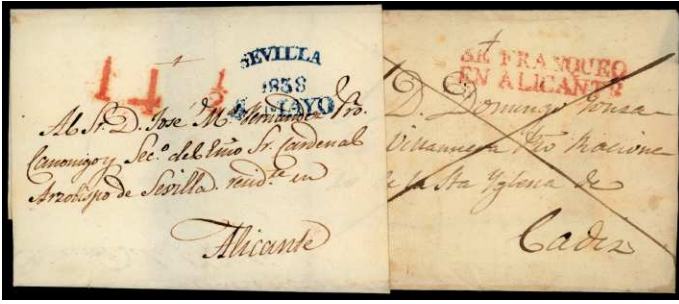 14 1/2
SEVILLA
1838
MAYO
Al Sr. D. José M. Hernandez Pro.
Canonigo y Sec.º del Emo Sr. Cardenal
Arzobispo de Sevilla. resid.te en
Alicante
SE FRANQUEO
EN ALICANTE
D. Domingo
Villanueva Pro Racione
de la Sta Yglesia de
Cadiz